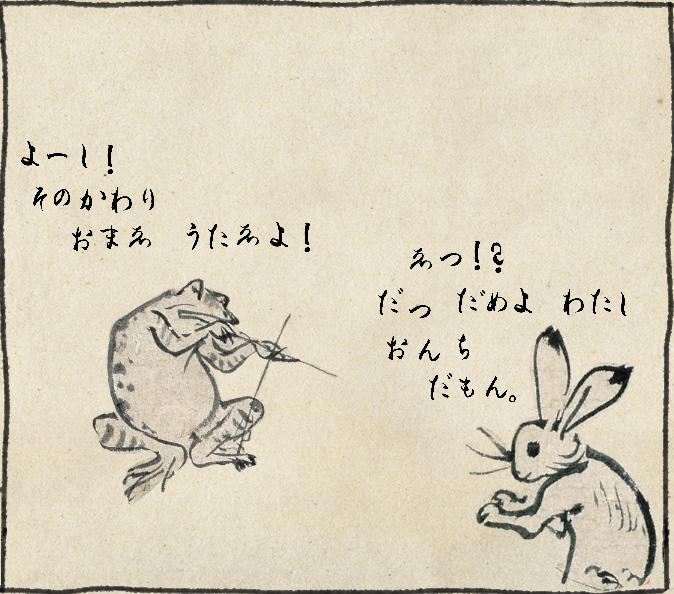 よーし!
そのかわり
おまゑ うたゑよ!
ゑつ!?
だっ だめよ わたし
おんち
だもん。